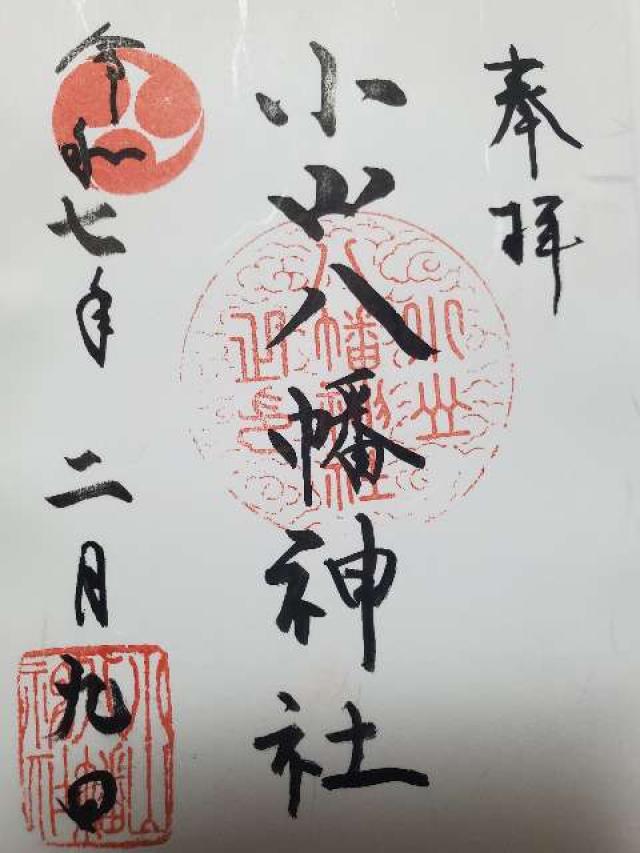 奉拝
小山八幡神社
令和七年 二月九日